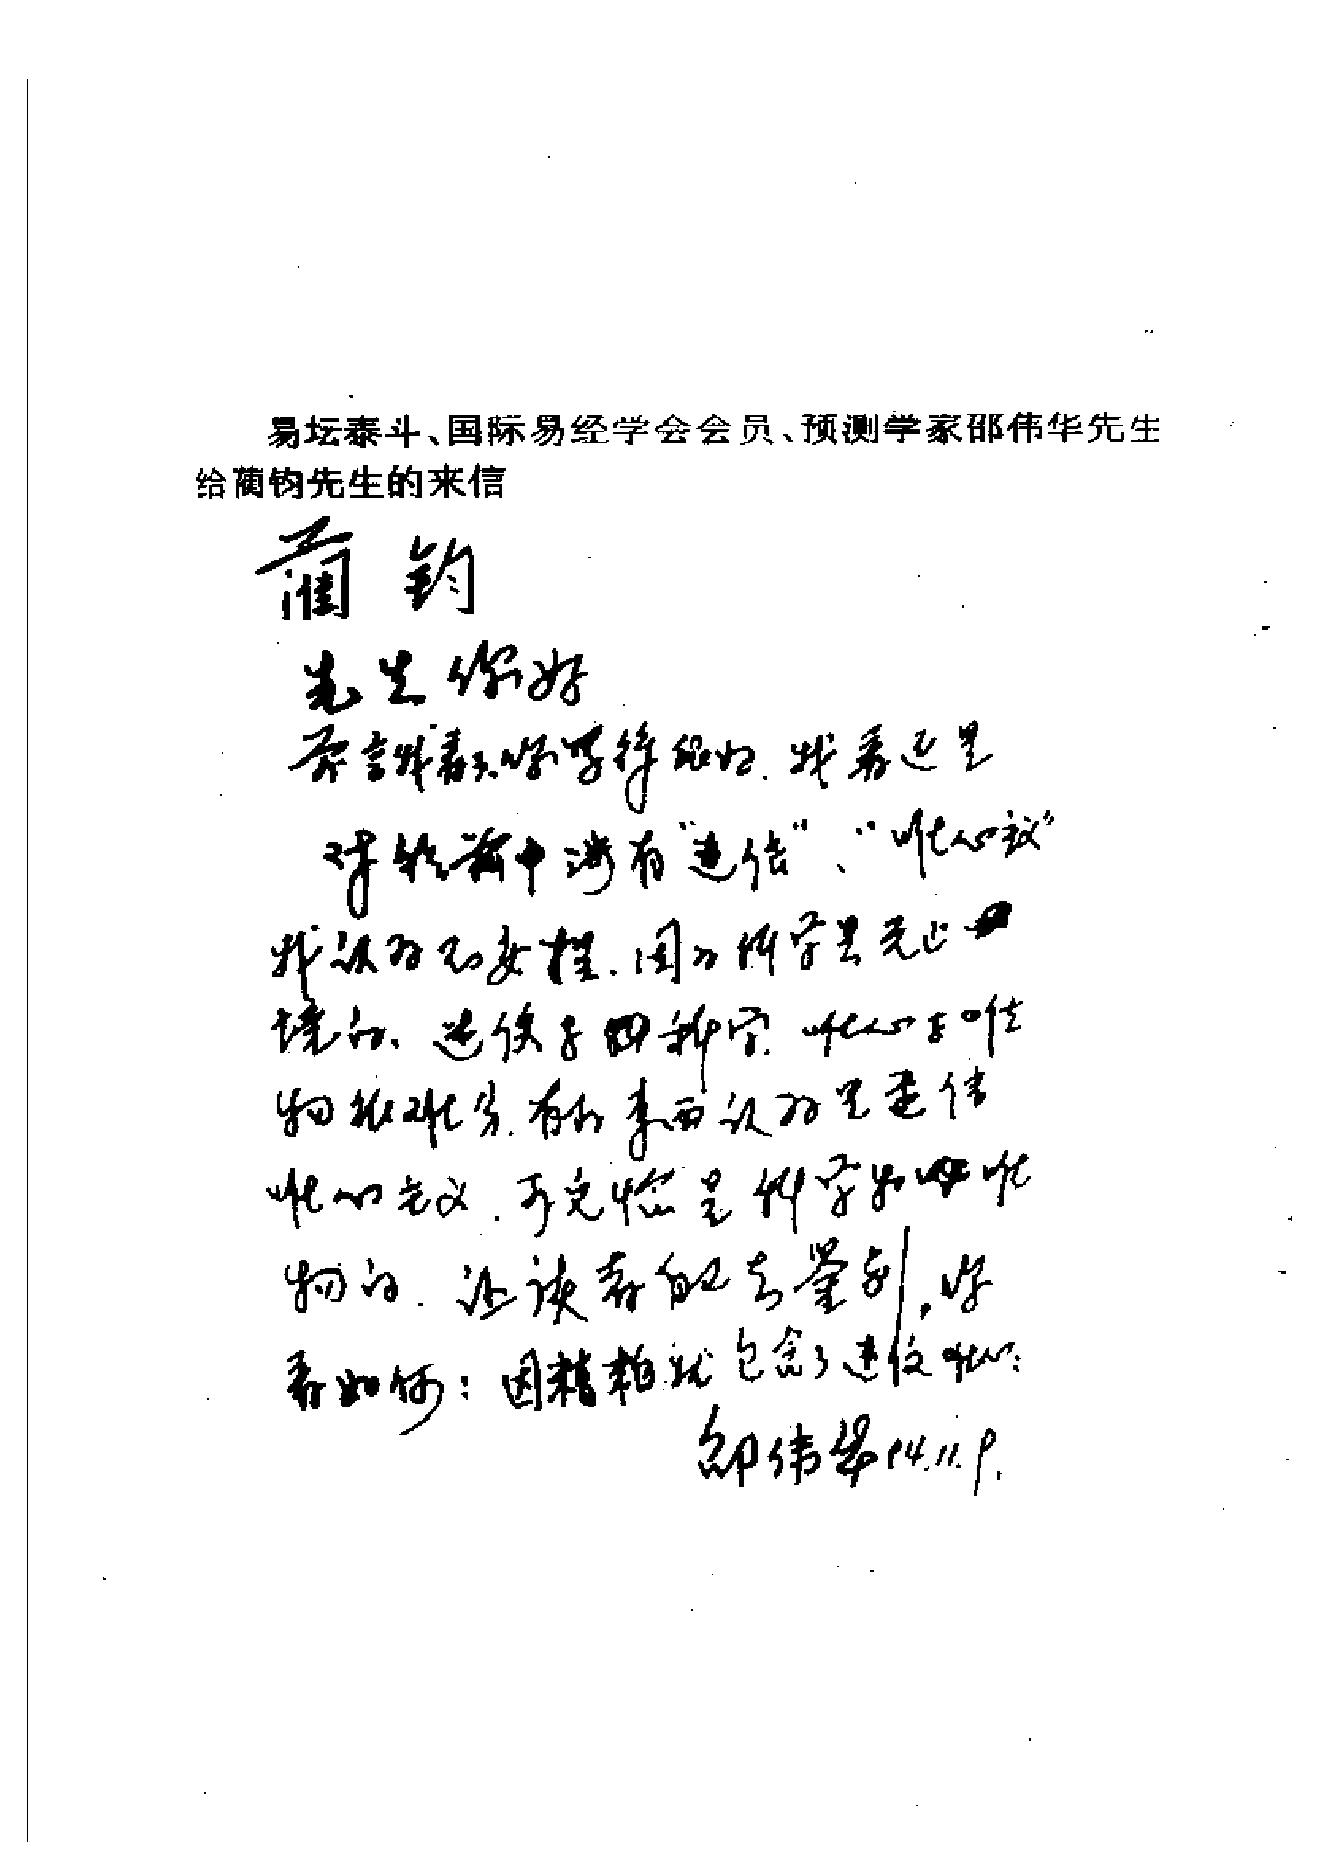 易坛泰斗、国际易经学会会员、预测学家邵伟华先生
给蔺钧先生的来信
蔺钧
先生你好
前言我看了,你写得很好.我看还是
对于前中没有"迷信"、"唯心议"
我认为不妥.因为科学是无止
境的、迷信与科学.唯心与唯
物很难分.有的东西认为是迷信
唯心主义.可完恰是科学的唯
物的.让读者自己去鉴别,你
看如何:因精粕就包含了迷信唯心:
邵伟华94.11.9.